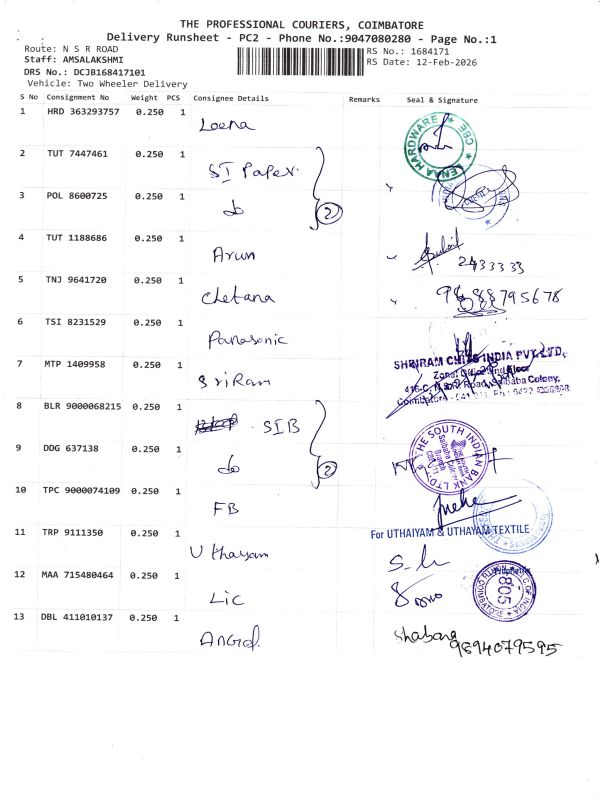 THE PROFESSIONAL COURIERS, COIMBATORE
Delivery Runsheet - PC2 - Phone No.:9047080280 - Page No.:1
Route: N S R ROAD
RS No.: 1684171
Staff: AMSALAKSHMI
RS Date: 12-Feb-2026
DRS No.: DCJB168417101
Vehicle: Two Wheeler Delivery
S No Consignment No Weight PCS Consignee Details Remarks Seal & Signature
1 HRD 363293757 0.250 1 Leena LENAA HARDWARE ★ CBE ★
2 TUT 7447461 0.250 1 SI Paper
3 POL 8600725 0.250 1 do (2)
4 TUT 1188686 0.250 1 Arun 2433333
5 TNJ 9641720 0.250 1 Chetana 9688795678
6 TSI 8231529 0.250 1 Panasonic
7 MTP 1409958 0.250 1 SriRam SHRIRAM CHITS INDIA PVT.LTD.
Saibaba Colony,
8 BLR 9000068215 0.250 1 SIB
9 DDG 637138 0.250 1 do (2) THE SOUTH INDIAN BANK LTD
10 TPC 9000074109 0.250 1 FB
11 TRP 9111350 0.250 1 Uthayam For UTHAIYAM & UTHAYAM TEXTILE
12 MAA 715480464 0.250 1 Lic 805
13 DBL 411010137 0.250 1 Shabana
9894079595